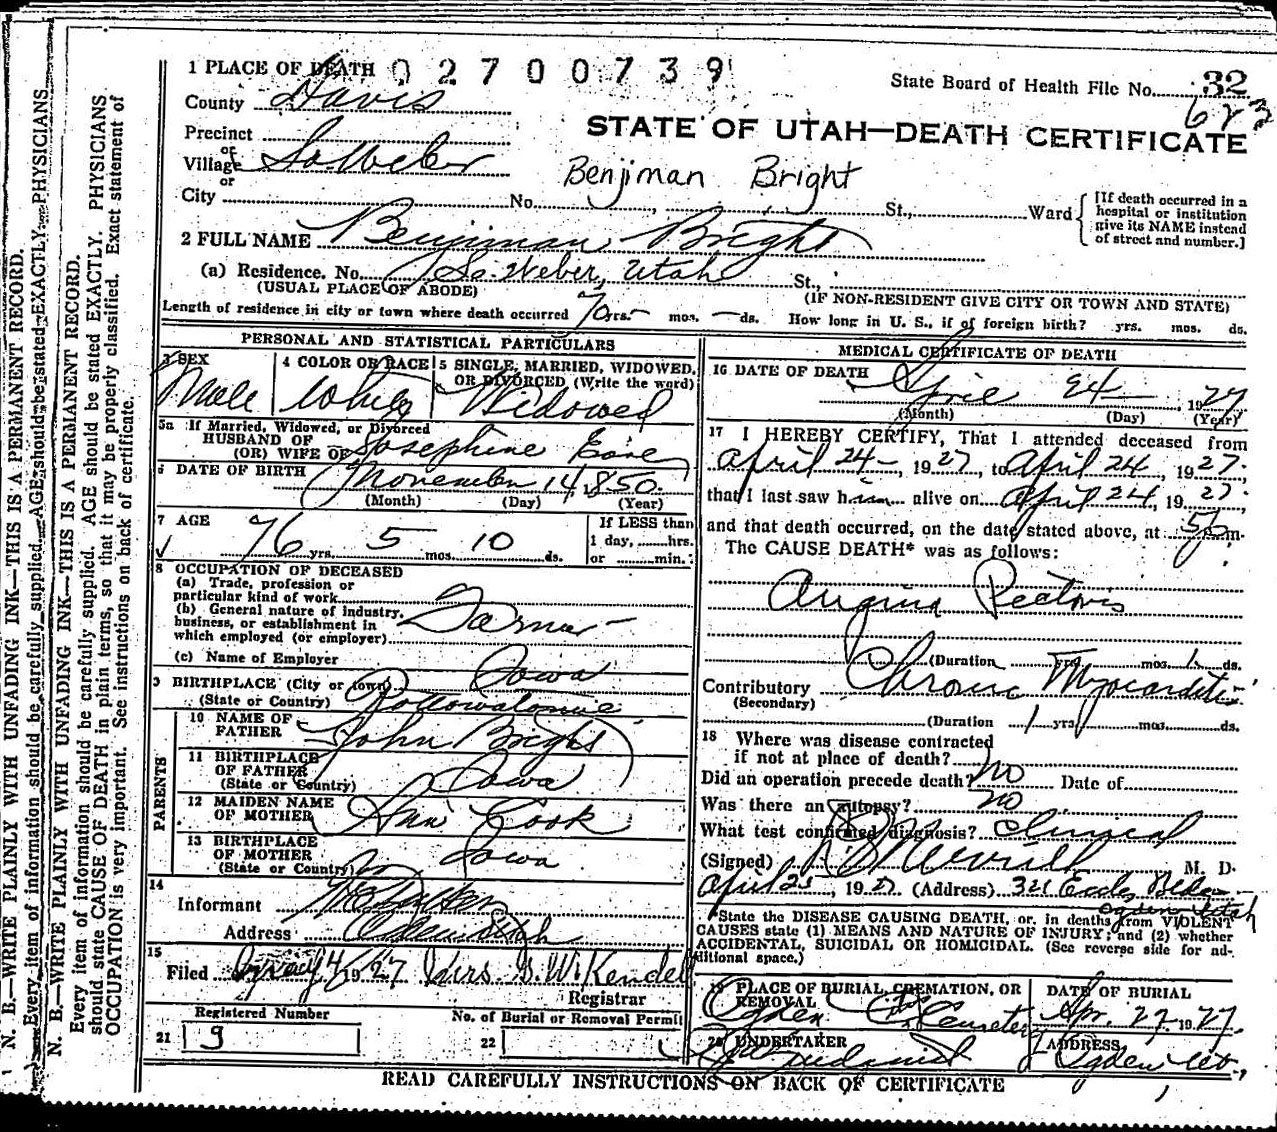 1 PLACE OF DEATH 0 2 7 0 0 7 3 9
State Board of Health File No. 32
623
County Davis
STATE OF UTAH—DEATH CERTIFICATE
Precinct
or
Village So. Weber
Benjiman Bright
or
City No. St., Ward
[If death occurred in a
hospital or institution
give its NAME instead
of street and number.]
2 FULL NAME Benjiman Bright
(a) Residence. No. So. Weber, Utah St.,
(USUAL PLACE OF ABODE) (IF NON-RESIDENT GIVE CITY OR TOWN AND STATE)
Length of residence in city or town where death occurred 70 yrs. — mos. — ds. How long in U. S., if of foreign birth? yrs. mos. ds.
PERSONAL AND STATISTICAL PARTICULARS
3 SEX
Male
4 COLOR OR RACE
White
5 SINGLE, MARRIED, WIDOWED,
OR DIVORCED (Write the word)
Widowed
5a If Married, Widowed, or Divorced
HUSBAND OF
(OR) WIFE OF Josephine
6 DATE OF BIRTH November 14, 1850.
(Month) (Day) (Year)
7 AGE
76 yrs. 5 mos. 10 ds.
If LESS than
1 day, hrs.
or min.
8 OCCUPATION OF DECEASED
(a) Trade, profession or
particular kind of work
(b) General nature of industry,
business, or establishment in
which employed (or employer)
Farmer
(c) Name of Employer
9 BIRTHPLACE (City or town)
(State or Country)
Iowa
Pottowatomie
PARENTS
10 NAME OF
FATHER John Bright
11 BIRTHPLACE
OF FATHER
(State or Country) Iowa
12 MAIDEN NAME
OF MOTHER Ann Cook
13 BIRTHPLACE
OF MOTHER
(State or Country) Iowa
14
Informant
Address
15
Filed 4/ 1927 Mrs. G. W. Kendel
Registrar
Registered Number No. of Burial or Removal Permit
21 9 22
MEDICAL CERTIFICATE OF DEATH
16 DATE OF DEATH
April 24 — 1927
(Month) (Day) (Year)
17 I HEREBY CERTIFY, That I attended deceased from
April 24 —, 1927, to April 24, 1927.
that I last saw him alive on April 24, 1927.
and that death occurred, on the date stated above, at 5 p m.
The CAUSE DEATH* was as follows:
Angina Pectoris
(Duration yrs. mos. 1 ds.
Contributory Chronic Myocarditis
(Secondary)
(Duration 1 yrs. mos. ds.
18 Where was disease contracted
if not at place of death?
Did an operation precede death? no Date of
Was there an autopsy? no
What test confirmed diagnosis? Clinical
(Signed) Merrill M. D.
April 25, 1927. (Address) 321 Eccles Bldg.
Ogden Utah
*State the DISEASE CAUSING DEATH, or, in deaths from VIOLENT
CAUSES state (1) MEANS AND NATURE OF INJURY; and (2) whether
ACCIDENTAL, SUICIDAL OR HOMICIDAL. (See reverse side for ad-
ditional space.)
19 PLACE OF BURIAL, CREMATION, OR
REMOVAL
Ogden
DATE OF BURIAL
Apr. 27, 1927.
20 UNDERTAKER
ADDRESS
Ogden
READ CAREFULLY INSTRUCTIONS ON BACK OF CERTIFICATE
N. B.—WRITE PLAINLY WITH UNFADING INK—THIS IS A PERMANENT RECORD.
Every item of information should be carefully supplied. AGE should be stated EXACTLY. PHYSICIANS
N. B.—WRITE PLAINLY WITH UNFADING INK—THIS IS A PERMANENT RECORD.
Every item of information should be carefully supplied. AGE should be stated EXACTLY. PHYSICIANS
should state CAUSE OF DEATH in plain terms, so that it may be properly classified. Exact statement of
OCCUPATION is very important. See instructions on back of certificate.